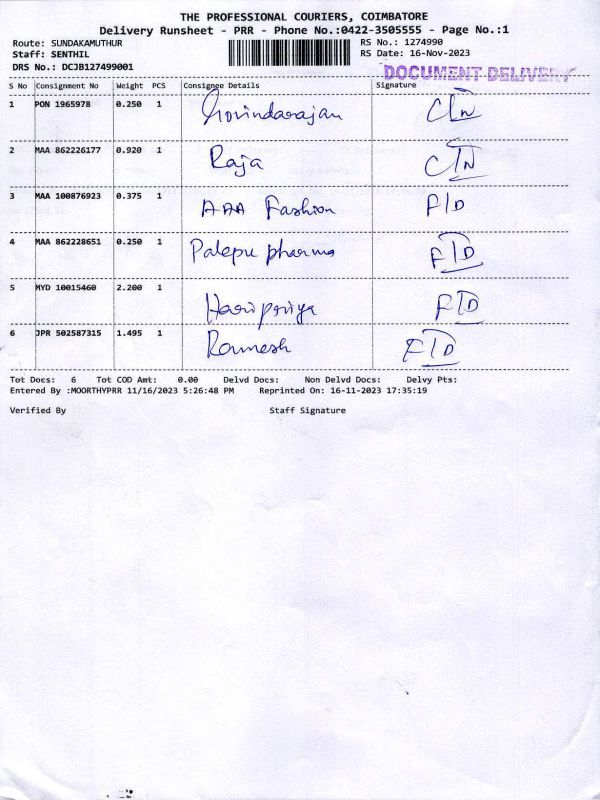 THE PROFESSIONAL COURIERS, COIMBATORE
Delivery Runsheet - PRR - Phone No.:0422-3505555 - Page No.:1
Route: SUNDAKAMUTHUR RS No.: 1274990
Staff: SENTHIL RS Date: 16-Nov-2023
DRS No.: DCJB127499001 DOCUMENT DELIVERY
S No Consignment No Weight PCS Consignee Details Signature
1 PON 1965978 0.250 1 Govindarajan
2 MAA 862226177 0.920 1 Raja
3 MAA 100876923 0.375 1 AAA Fashion F/D
4 MAA 862228651 0.250 1 Palepu pharma F/D
5 MYD 10015460 2.200 1 Haripriya F/D
6 JPR 502587315 1.495 1 Ramesh F/D
Tot Docs: 6 Tot COD Amt: 0.00 Delvd Docs: Non Delvd Docs: Delvy Pts:
Entered By :MOORTHYPRR 11/16/2023 5:26:48 PM Reprinted On: 16-11-2023 17:35:19
Verified By Staff Signature